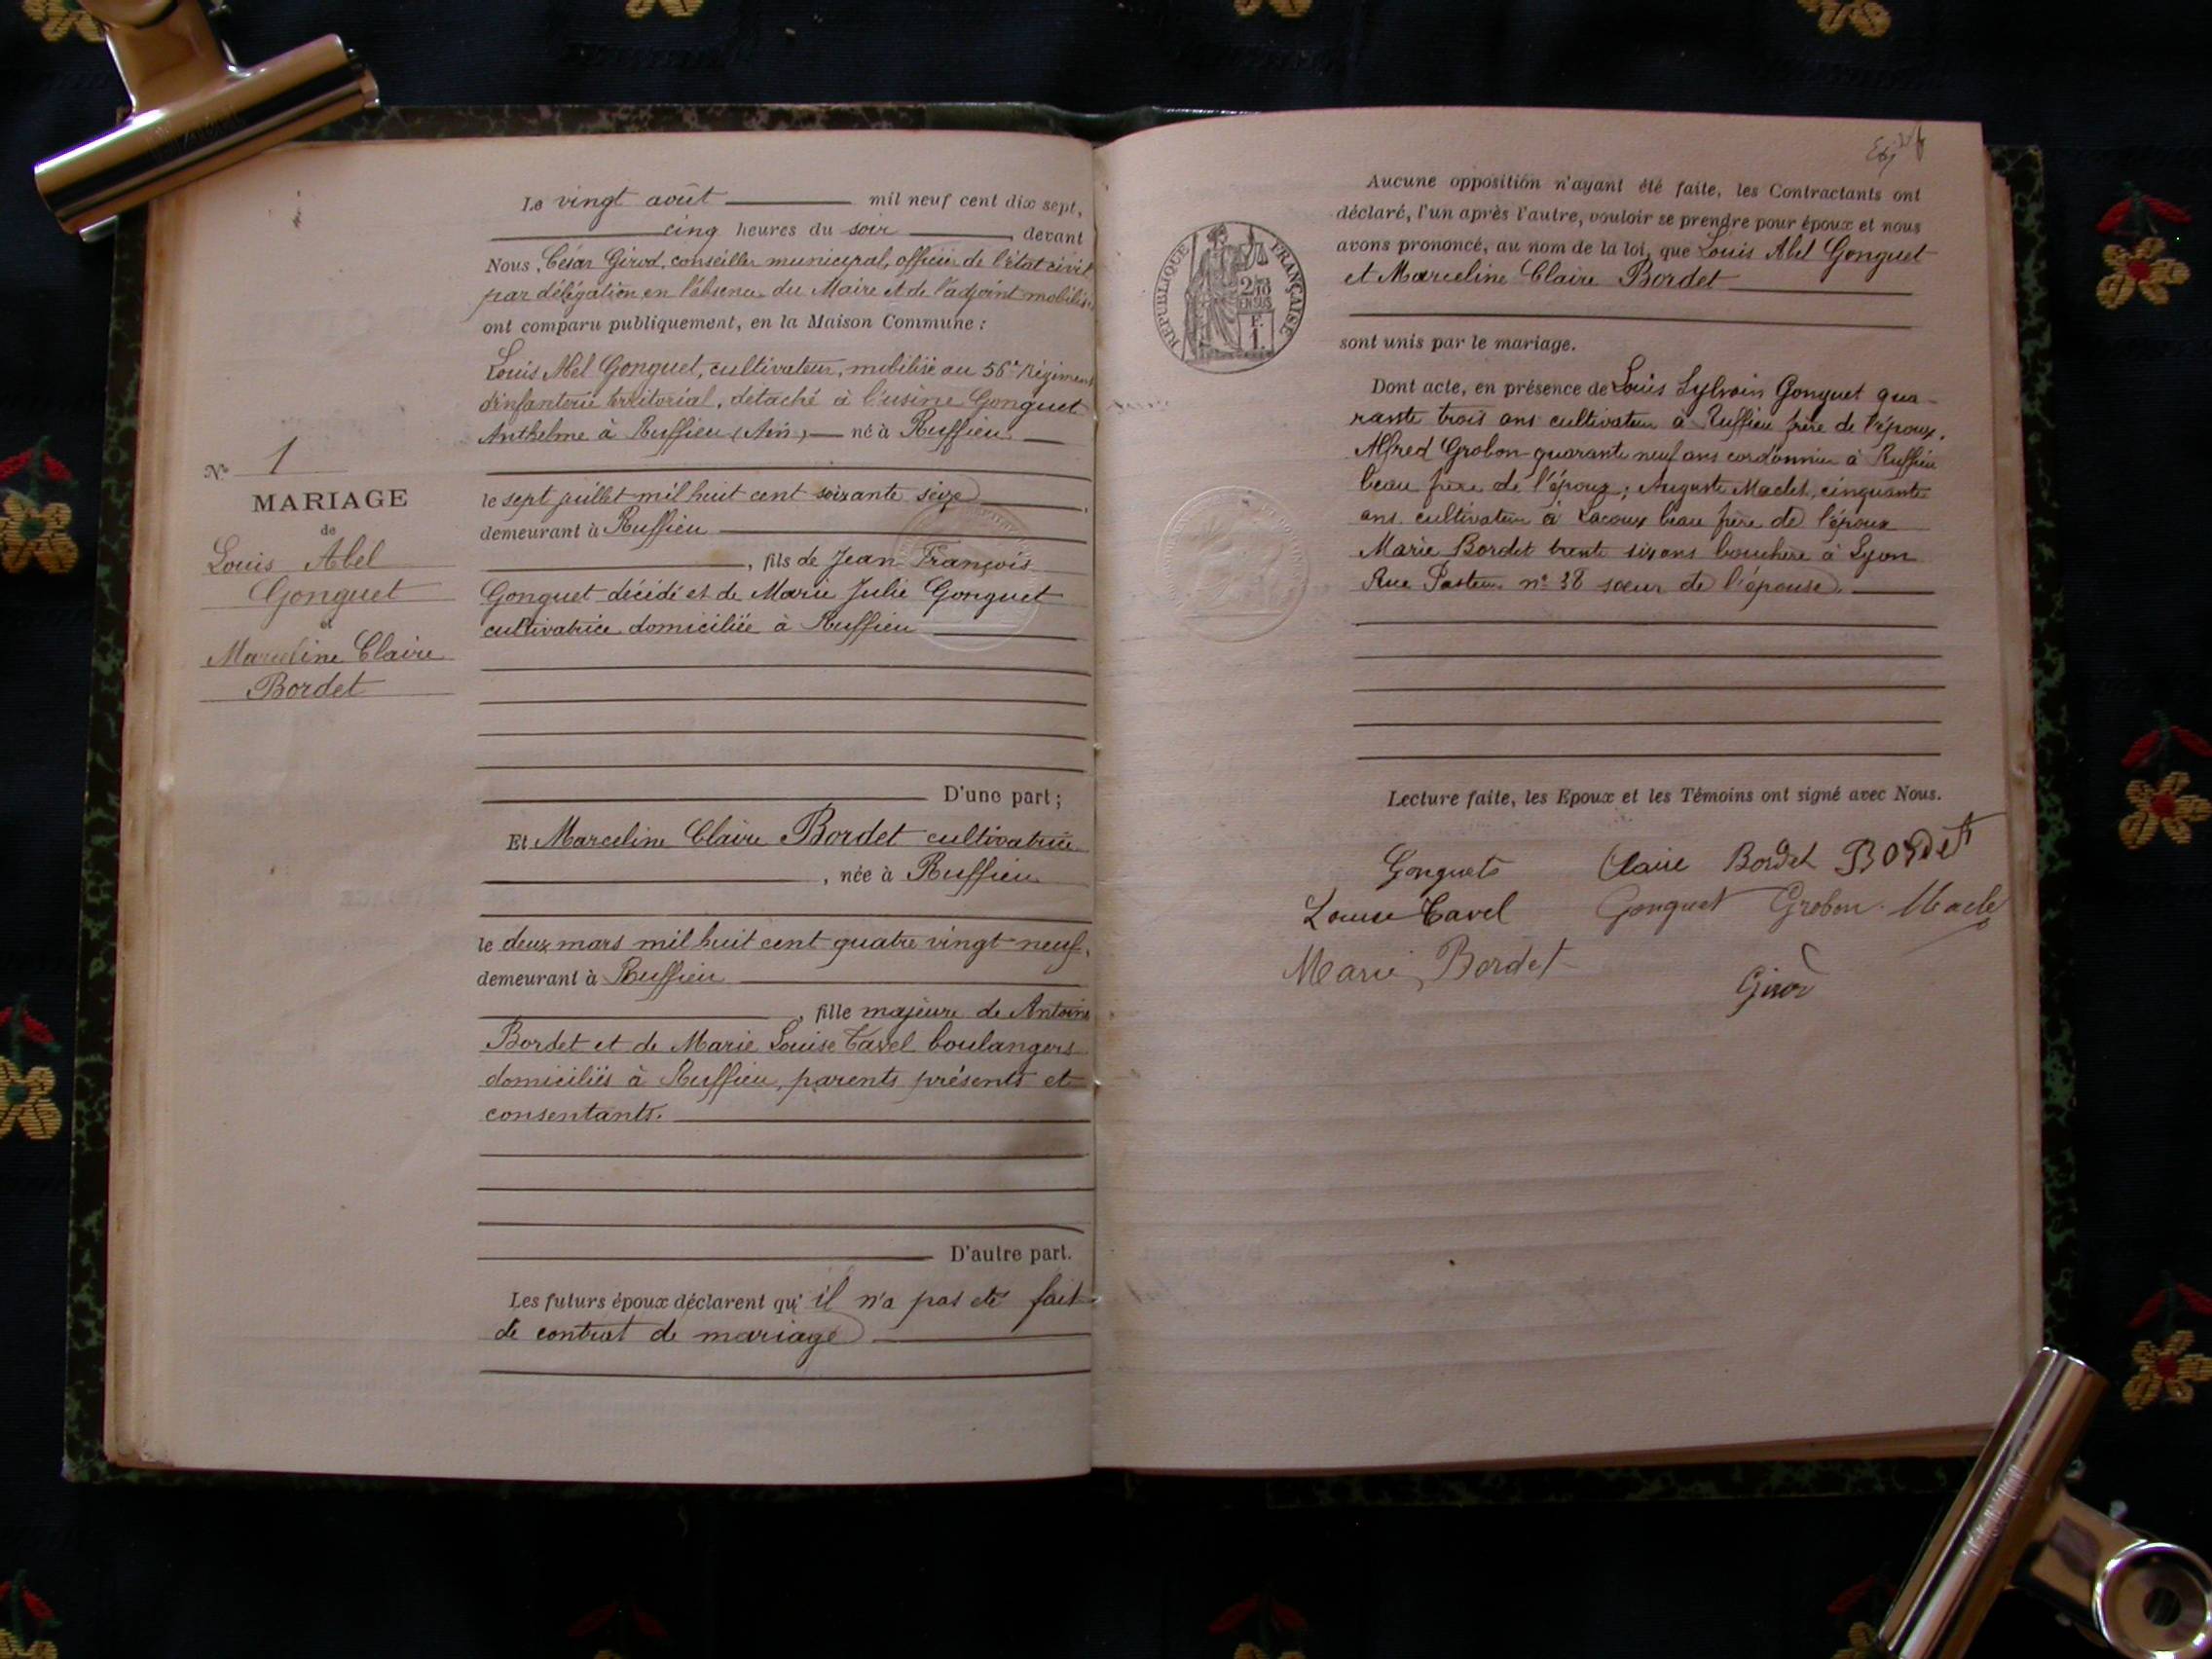 Le vingt août mil neuf cent dix sept,
cinq heures du soir devant
Nous, César Girod, conseiller municipal, officier de l'état civil
par délégation en l'absence du Maire et de l'adjoint mobilisés
ont comparu publiquement, en la Maison Commune :
Louis Abel Gonguet, cultivateur, mobilisé au 56e Régiment
d'infanterie territorial, détaché à l'usine Gonguet
Anthelme à Ruffieu (Ain) né à Ruffieu
le sept juillet mil huit cent soixante seize
demeurant à Ruffieu
, fils de Jean François
Gonguet décédé et de Marie Julie Gonguet
cultivatrice domiciliée à Ruffieu
D'une part ;
Et Marceline Claire Bordet cultivatrice
, née à Ruffieu
le deux mars mil huit cent quatre vingt neuf,
demeurant à Ruffieu
, fille majeure de Antoine
Bordet et de Marie Louise Tavel boulangers
domiciliés à Ruffieu, parents présents et
consentants.
D'autre part.
Les futurs époux déclarent qu'il n'a pas été fait
de contrat de mariage
No 1
MARIAGE
de
Louis Abel
Gonguet
et
Marceline Claire
Bordet
Aucune opposition n'ayant été faite, les Contractants ont
déclaré, l'un après l'autre, vouloir se prendre pour époux et nous
avons prononcé, au nom de la loi, que Louis Abel Gonguet
et Marceline Claire Bordet
sont unis par le mariage.
Dont acte, en présence de Louis Sylvain Gonguet qua-
rante trois ans cultivateur à Ruffieu frère de l'époux,
Alfred Grobon quarante neuf ans cordonnier à Ruffieu
beau frère de l'époux ; Auguste Maclet, cinquante
ans cultivateur à Lacoux beau frère de l'époux
Marie Bordet trente six ans bouchère à Lyon
Rue Pasteur no 38 sœur de l'épouse.
Lecture faite, les Epoux et les Témoins ont signé avec Nous.
Gonguet Claire Bordet Bordet
Louise Tavel Gonguet Grobon
Marie Bordet Girod
RÉPUBLIQUE FRANÇAISE
2/10
EN SUS
F.
1.